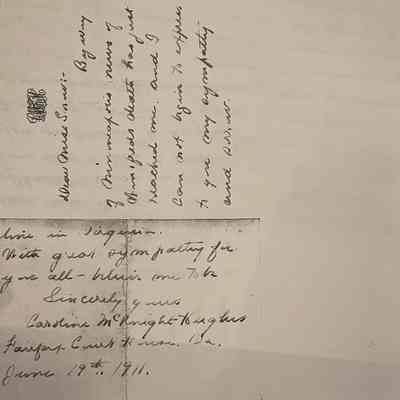 Dear Miss
By way
of Minneapolis news of
Winifreds death has just
reached me, and I
can not begin to express
to you my sympathy
and sorrow.
live in Virginia.
With great sympathy for
you all – believe me to be
Sincerely yours
Caroline McKnight Hughes
Fairfax Court House. Va.
June 19th. 1911.